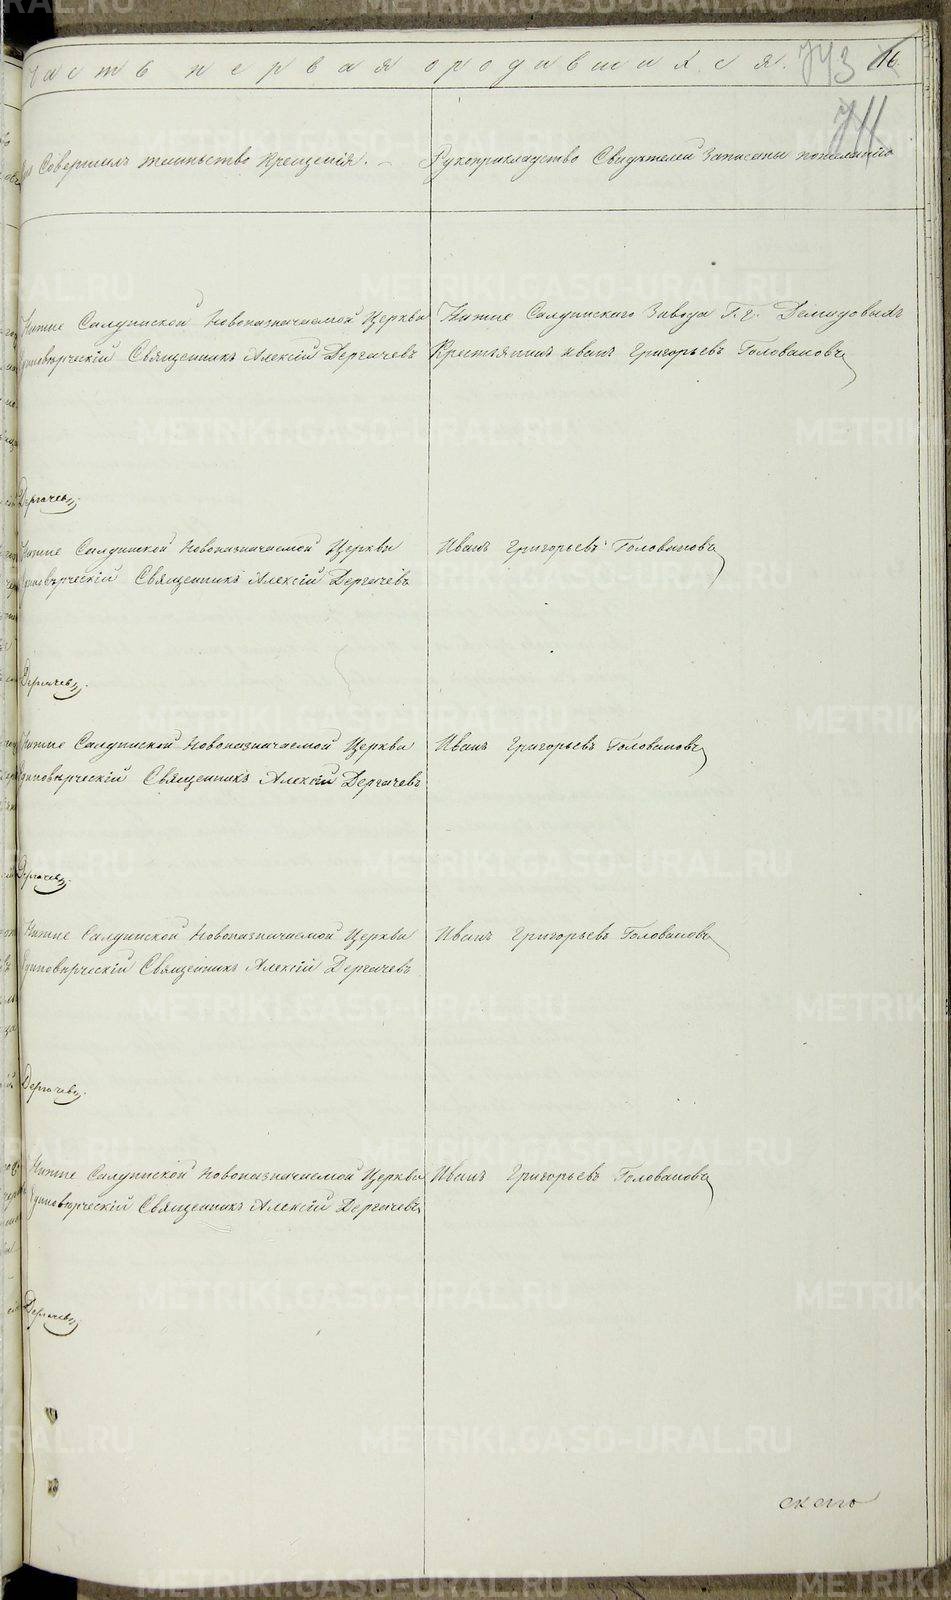 Часть первая о родившихся. 743 16
711
Совершилъ таинъство Крещенія. Рукоприкладство Свидѣтелей Записани пожеланію
Нижне Салдинской Новоназначаемой Церкви
Единовѣрческій Священникъ Алексій Дергачевъ
Нижне Салдинскаго Завода Г.г. Демидовыхъ
Крестьянинъ Иванъ Григорьевъ Головановъ
Дергачевъ
Нижне Салдинской Новоназначаемой Церкви
Единовѣрческій Священникъ Алексій Дергачевъ
Иванъ Григорьевъ Головановъ
Дергачевъ
Нижне Салдинской Новоназначаемой Церкви
Единовѣрческій Священникъ Алексій Дергачевъ
Иванъ Григорьевъ Головановъ
Дергачевъ
Нижне Салдинской Новоназначаемой Церкви
Единовѣрческій Священникъ Алексій Дергачевъ
Иванъ Григорьевъ Головановъ
Дергачевъ
Нижне Салдинской Новоназначаемой Церкви
Единовѣрческій Священникъ Алексій Дергачевъ
Иванъ Григорьевъ Головановъ
Дергачевъ
METRIKI.GASO-URAL.RU